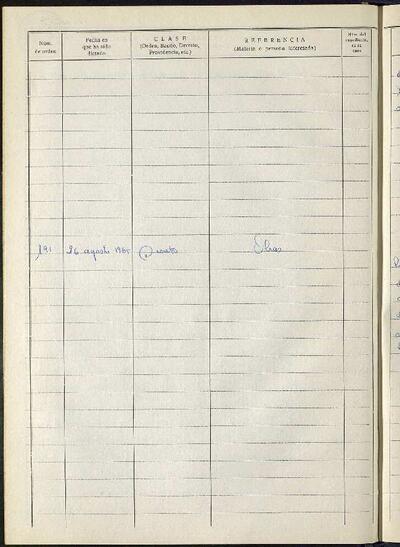 Núm. de orden
Fecha en
que ha sido
dictado
CLASE
(Orden, Bando, Decreto,
Providencia, etc.)
REFERENCIA
(Materia o persona interesada)
Núm. del
expediente,
191 26 agosto 196 Decreto Obras